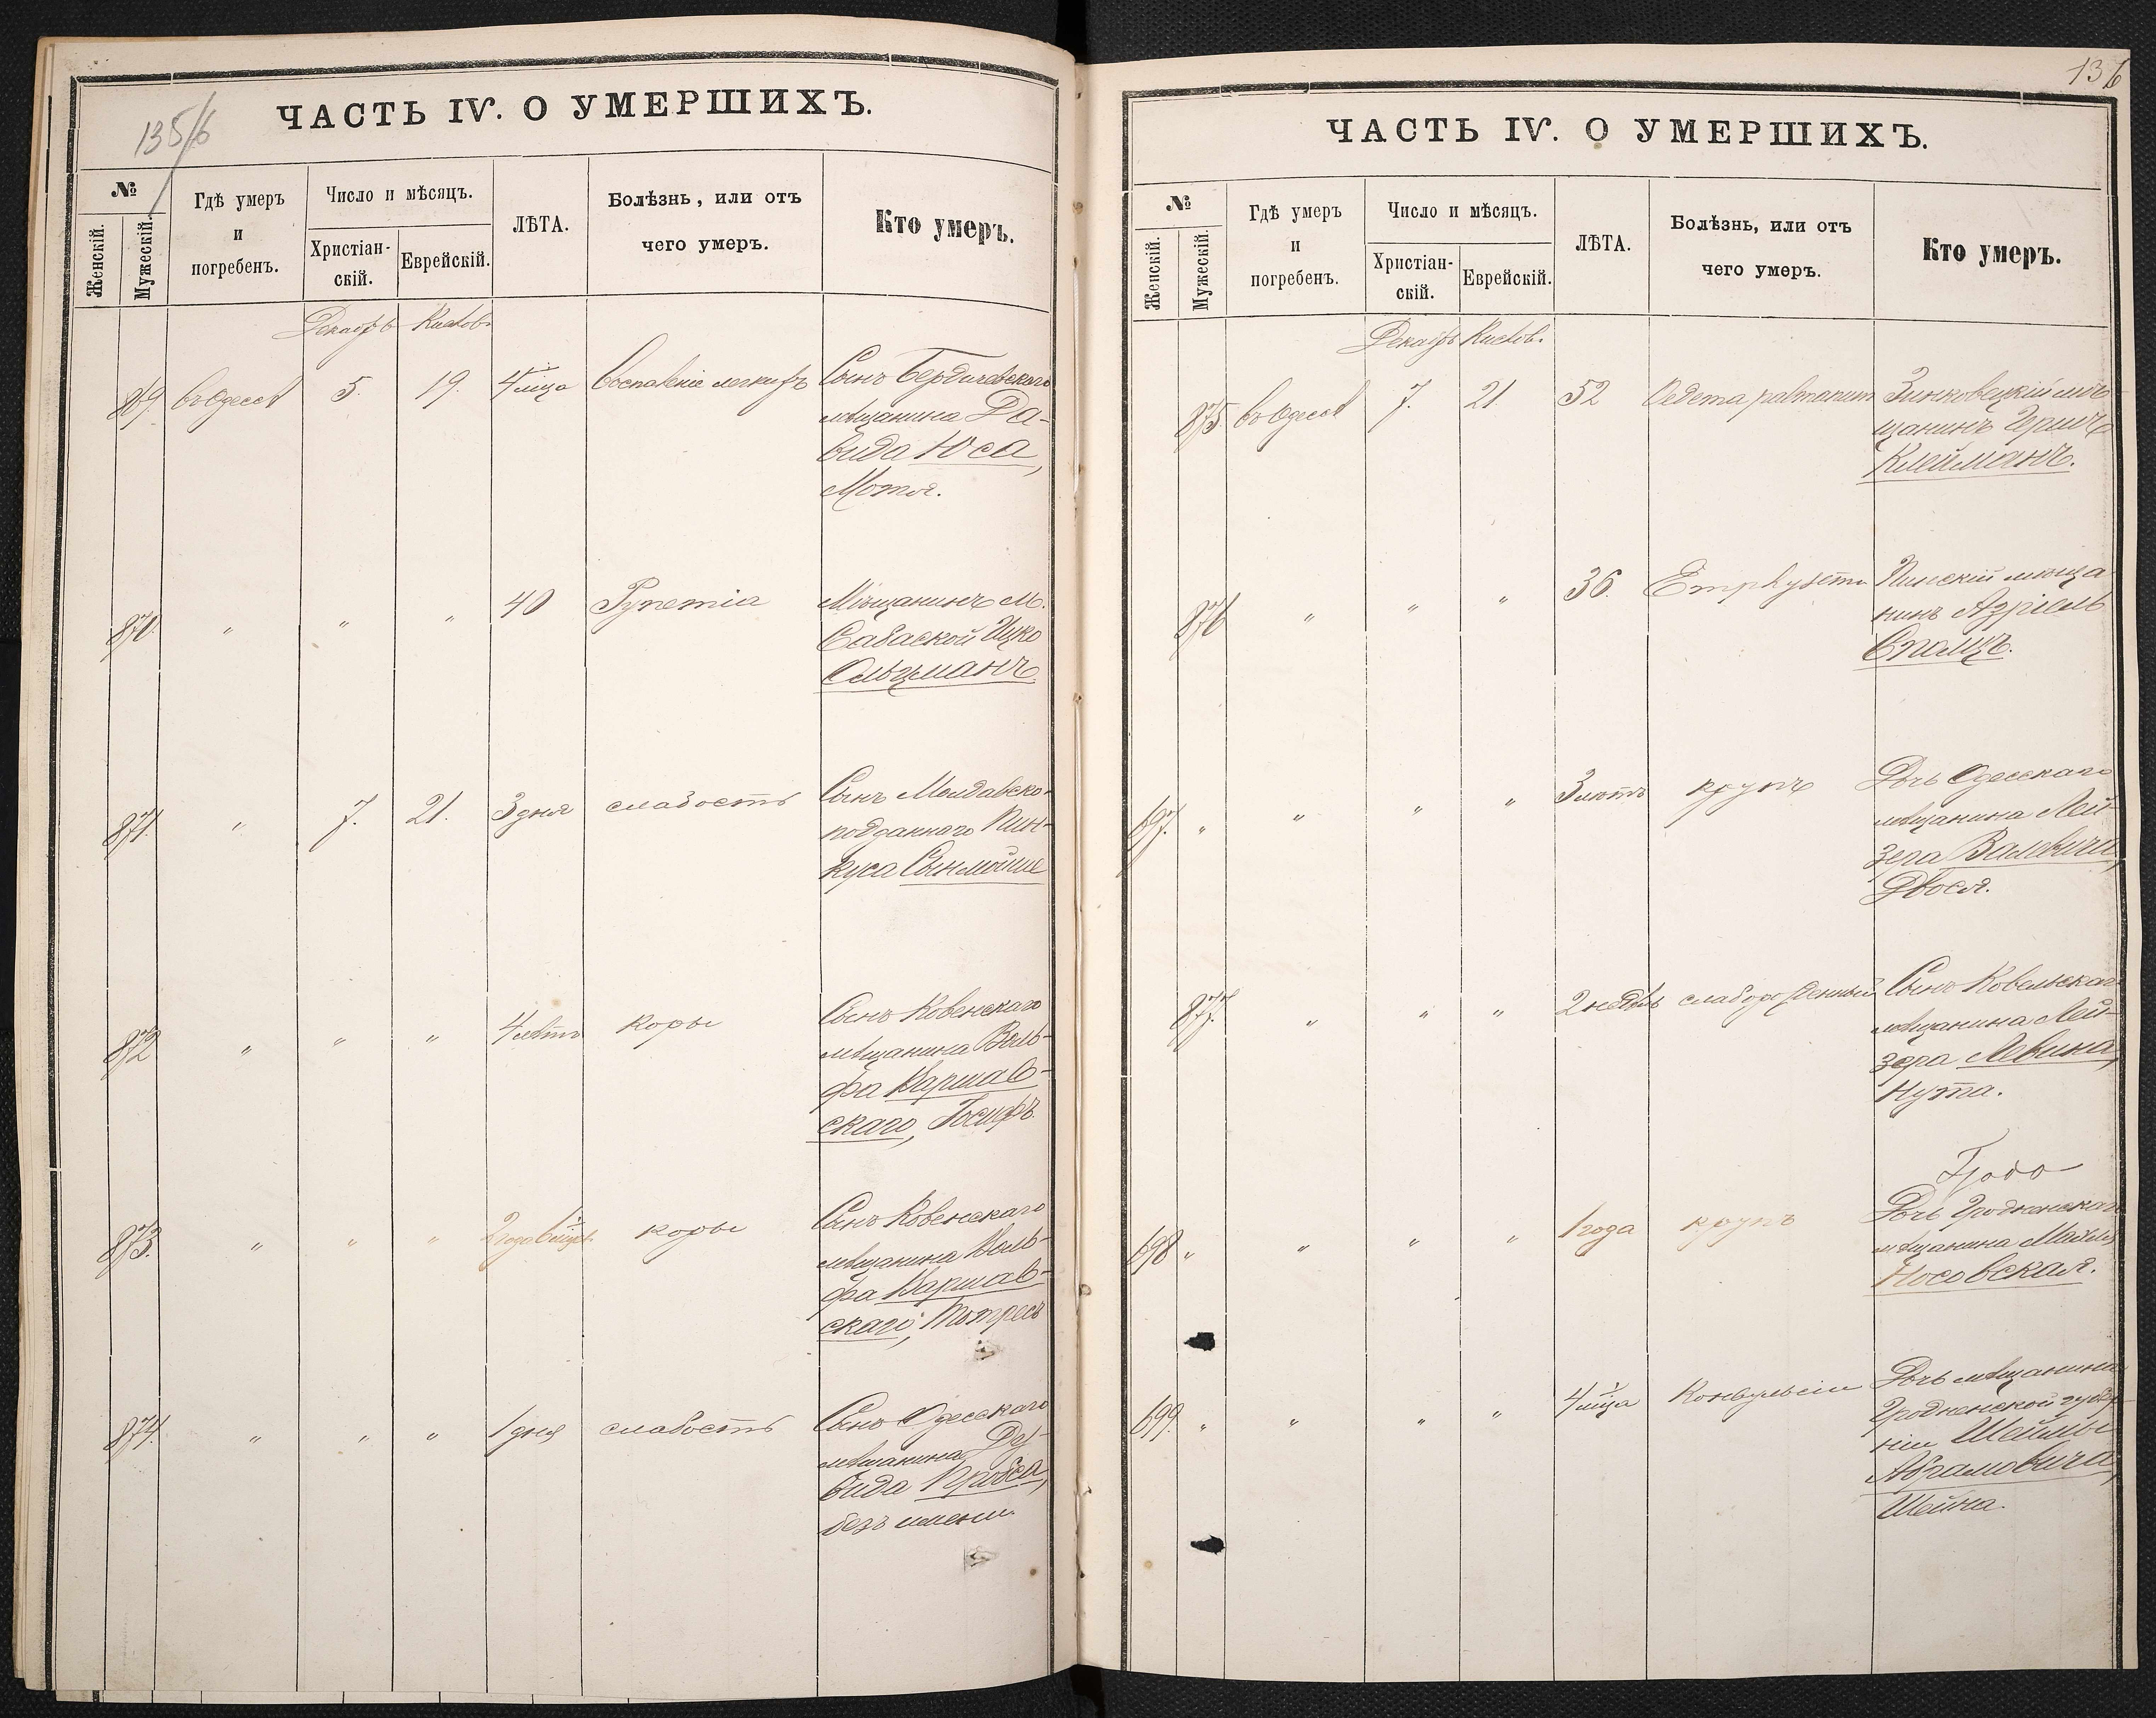 135/6
ЧАСТЬ IV. О УМЕРШИХЪ.
№
Женскій.
Мужескій.
Гдѣ умеръ
и
погребенъ.
Число и мѣсяцъ.
Христіан-
скій.
Еврейскій.
ЛѢТА.
Болѣзнь, или отъ
чего умеръ.
Кто умеръ.
Декабрь Кислов.
869. въ Одессѣ 5. 19. 4 м-ца Воспаленіе легкихъ Сынъ Бердичевскаго
мѣщанина Да-
вида Юса,
Мотя.
870. " " " 40 Pyaemia Мѣщанинъ м.
Ицко
Ольцманъ.
871. " 7. 21. 3 дня слабость Сынъ Молдавско-
подданнаго Пин-
куса
872 " " " 4 лѣтъ коры Сынъ Ковенскаго
мѣщанина Воль-
фа Варшав-
скаго, Іосифъ.
873. " " " 2 года 6 мѣсц. коры Сынъ Ковенскаго
мѣщанина Воль-
фа Варшав-
скаго,
874. " " " 1 дня слабость Сынъ Одесскаго
мѣщанина Да-
вида
безъ имени.
136
ЧАСТЬ IV. О УМЕРШИХЪ.
№
Женскій.
Мужескій.
Гдѣ умеръ
и
погребенъ.
Число и мѣсяцъ.
Христіан-
скій.
Еврейскій.
ЛѢТА.
Болѣзнь, или отъ
чего умеръ.
Кто умеръ.
Декабрь Кислов.
875. въ Одессѣ 7. 21. 52 Зиньковецкій мѣ-
щанинъ Гершъ
Клейманъ.
876 " " " 36. Emphysema Пинскій мѣща
нинъ Азріель
Спальцъ.
697. " " " " 3 лѣтъ крупъ Дочь Одесскаго
мѣщанина Лей-
зера Валевича,
Двося.
877. " " " 2 недѣль слаборожденный Сынъ Ковельскаго
мѣщанина Лей-
зера Левина,
Нута.
698 " " " " 1 года крупъ Дочь Гродненскаго
мѣщанина
Носовская.
699. " " " " 4 м-ца Конвульсіи Дочь мѣщанина
Гродненской губер-
ніи
Абрамовича,
Шейна.